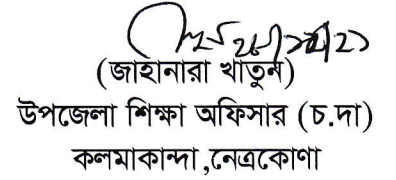 (জাহানারা খাতুন)
উপজেলা শিক্ষা অফিসার (চ.দা)
কলমাকান্দা,নেত্রকোণা